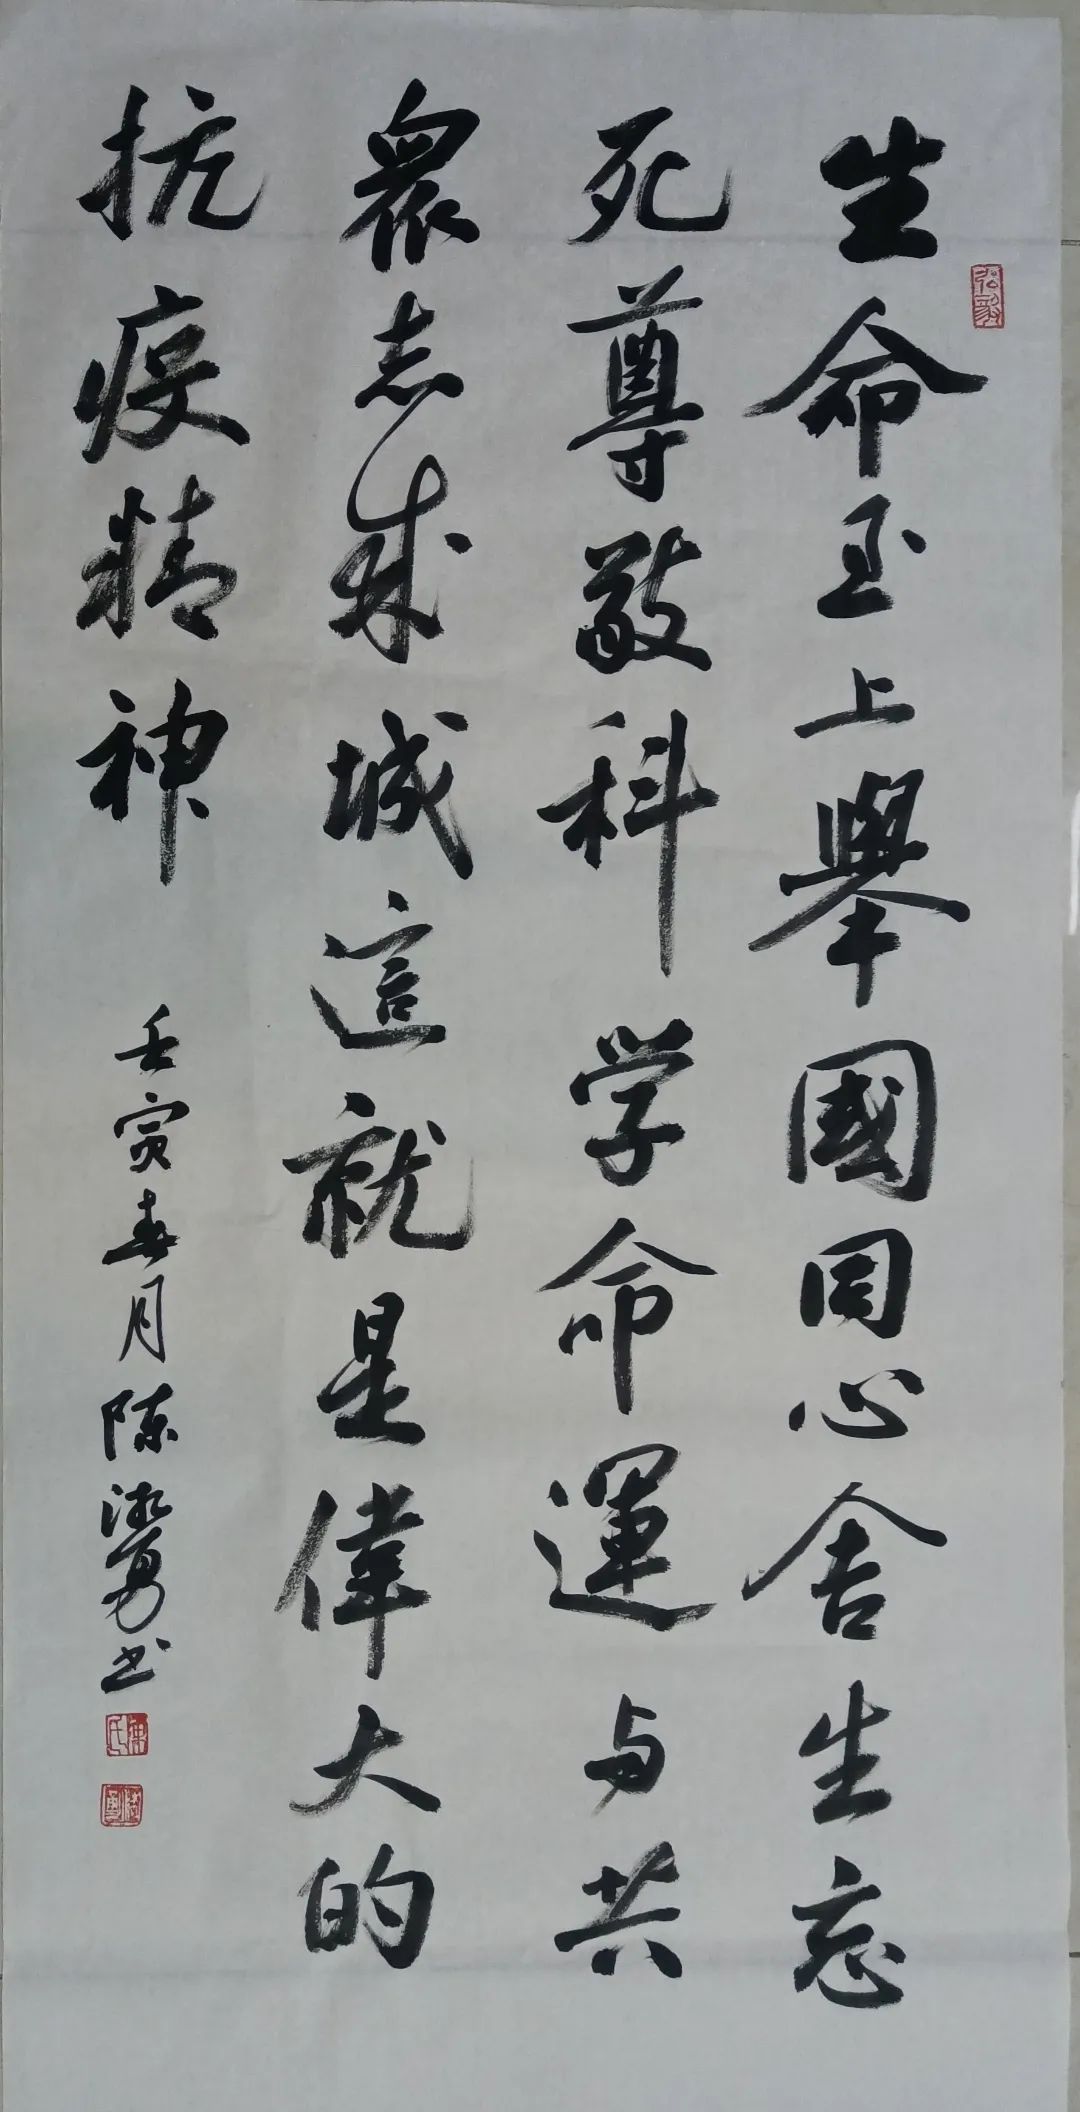 生命至上舉國同心舍生忘
死尊敬科学命運与共
衆志成城這就是偉大的
抗疫精神
壬寅春月陈 勇书